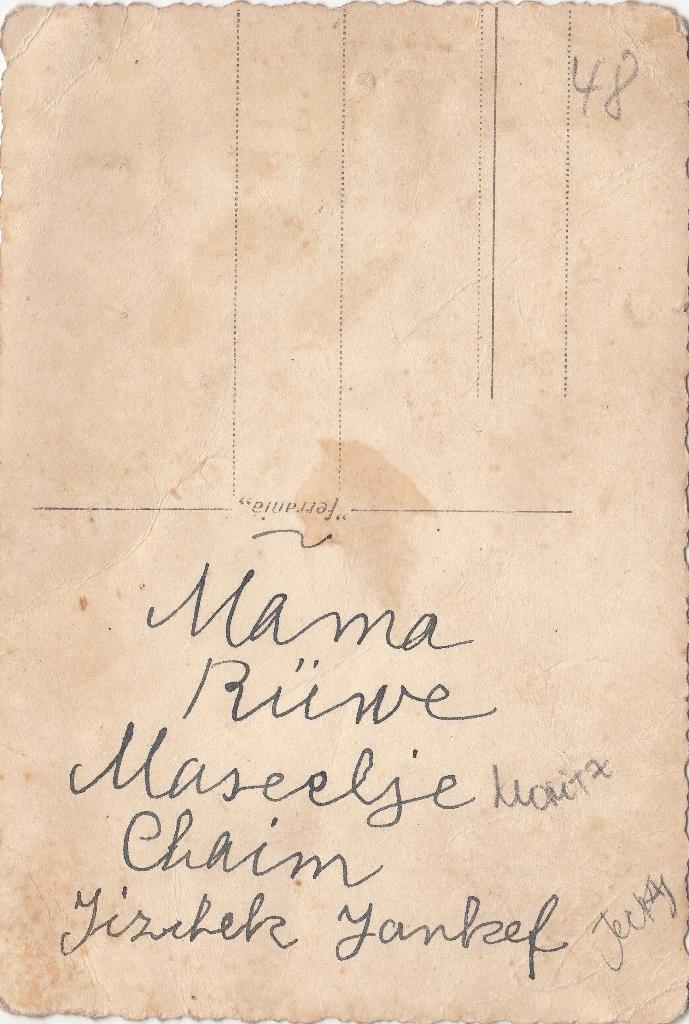 48
"Ferrania"
Mama
Rüwe
Maseelje Moritz
Chaim
Jizchek Jankef Jecky